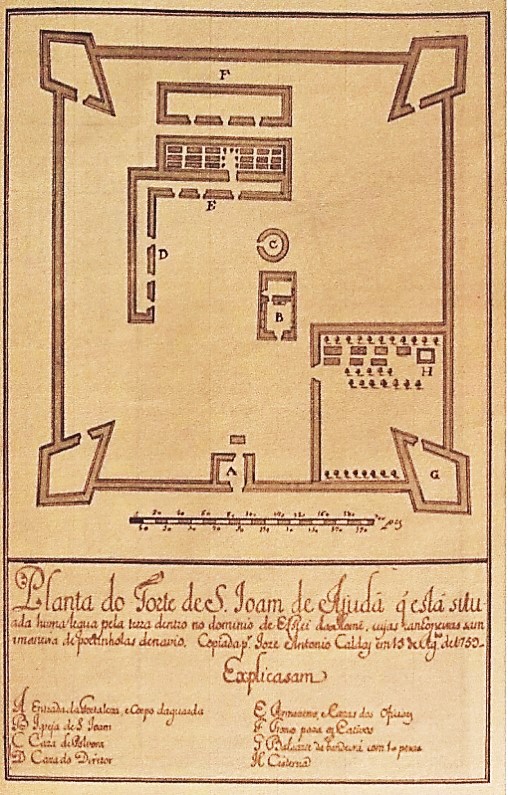 F
E
D
C
B
H
A
G
Planta do Forte de S. Ioam de Ajudá q̃ está situ
ada huma legua pela terra dentro no dominio de ElRei cujas sam
de portinholas de navio. Copiada p.r Joze Antonio Caldas em 13 de Ag.o de 1759
Explicasam
A Entrada da Fortaleza, e Corpo da guarda
B Igreja de S. Ioam
C Caza de Polvora
D Caza do Diretor
E Armazens, e Cazas dos Ofisiaes
F para os Cativos
G Baluarte da bandeira com pesas
H Cisterna